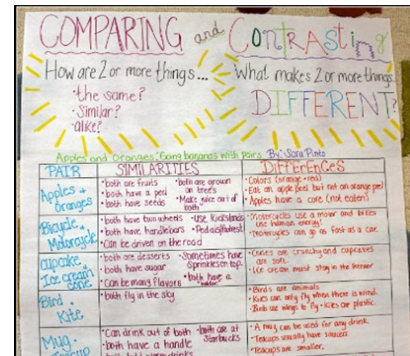 COMPARING and CONTRASTING
How are 2 or more things...
What makes 2 or more things
DIFFERENT?
• the same?
• Similar?
• alike?
Apples and Oranges: Going bananas with pairs By: Sara Pinto
PAIR SIMILARITIES DIFFERENCES
Apples + oranges
• both are fruits
• both have a peel
• both have seeds
• both are grown on trees
• Make juice out of both
• Colors (orange + red)
• Eat an apple peel but not an orange peel
• Apples have a core (not eaten)
Bicycle + Motorcycle
• both have two wheels
• both have handlebars
• Can be driven on the road
• Use Kickstands
• Pedals/footrest
• Motorcycles use a motor and bikes use human energy!
• Motorcycles can go fast as a car.
Cupcake + Ice cream cone
• both are desserts
• both have sugar
• Can be many flavors
• Sometimes have sprinkles on top.
• both have a
• Cones are crunchy and cupcakes are soft.
• Ice cream must stay in the freezer
Bird + Kite
• both fly in the sky
• Birds are animals
• Kites can only fly when there is wind.
• Birds use wings to fly • Kites are plastic.
Mug + Teacup
• Can drink out of both
• both have a handle
• both are at Starbucks
• A mug can be used for any drink.
• Teacups usually have saucers
• Teacups are smaller.